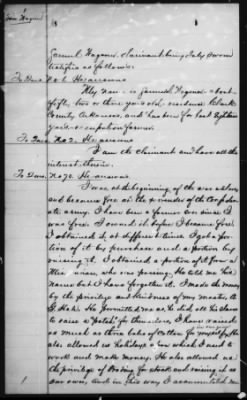 Sam'l Hagood
Samuel Hagood, Claimant being duly sworn
testifies as follows:
To Ques. No 1. He answers
My name is Samuel Hagood about
fifty, two or three years old, residence Clark
County Arkansas, and has been for last eighteen
years - occupation farmer.
To Ques. No 2. He answers
I am the Claimant and have all the
interest therein.
To Ques. No 72. He answers
I was at beginning of the war a slave
and became free at the surrender of the Confeder-
ate army. I have been a farmer ever since I
was free. I owned it before I became free.
I obtained it at different times. I got a por-
tion of it by purchase and a portion by
raising it. I obtained a portion of it from a
man, who was passing. He told me his
name but I have forgotten it. I made the money
by the privilege and kindness of my master, A.
G. He permitted me as he did all his slaves
to raise a "patch" for themselves, I have raised
as much as three bales of cotton for myself. He
also allowed us holidays in which I used to
work and make money. He also allowed us
the privilege of trading for stock and raising it as
our own, and in this way I accumulated my
1